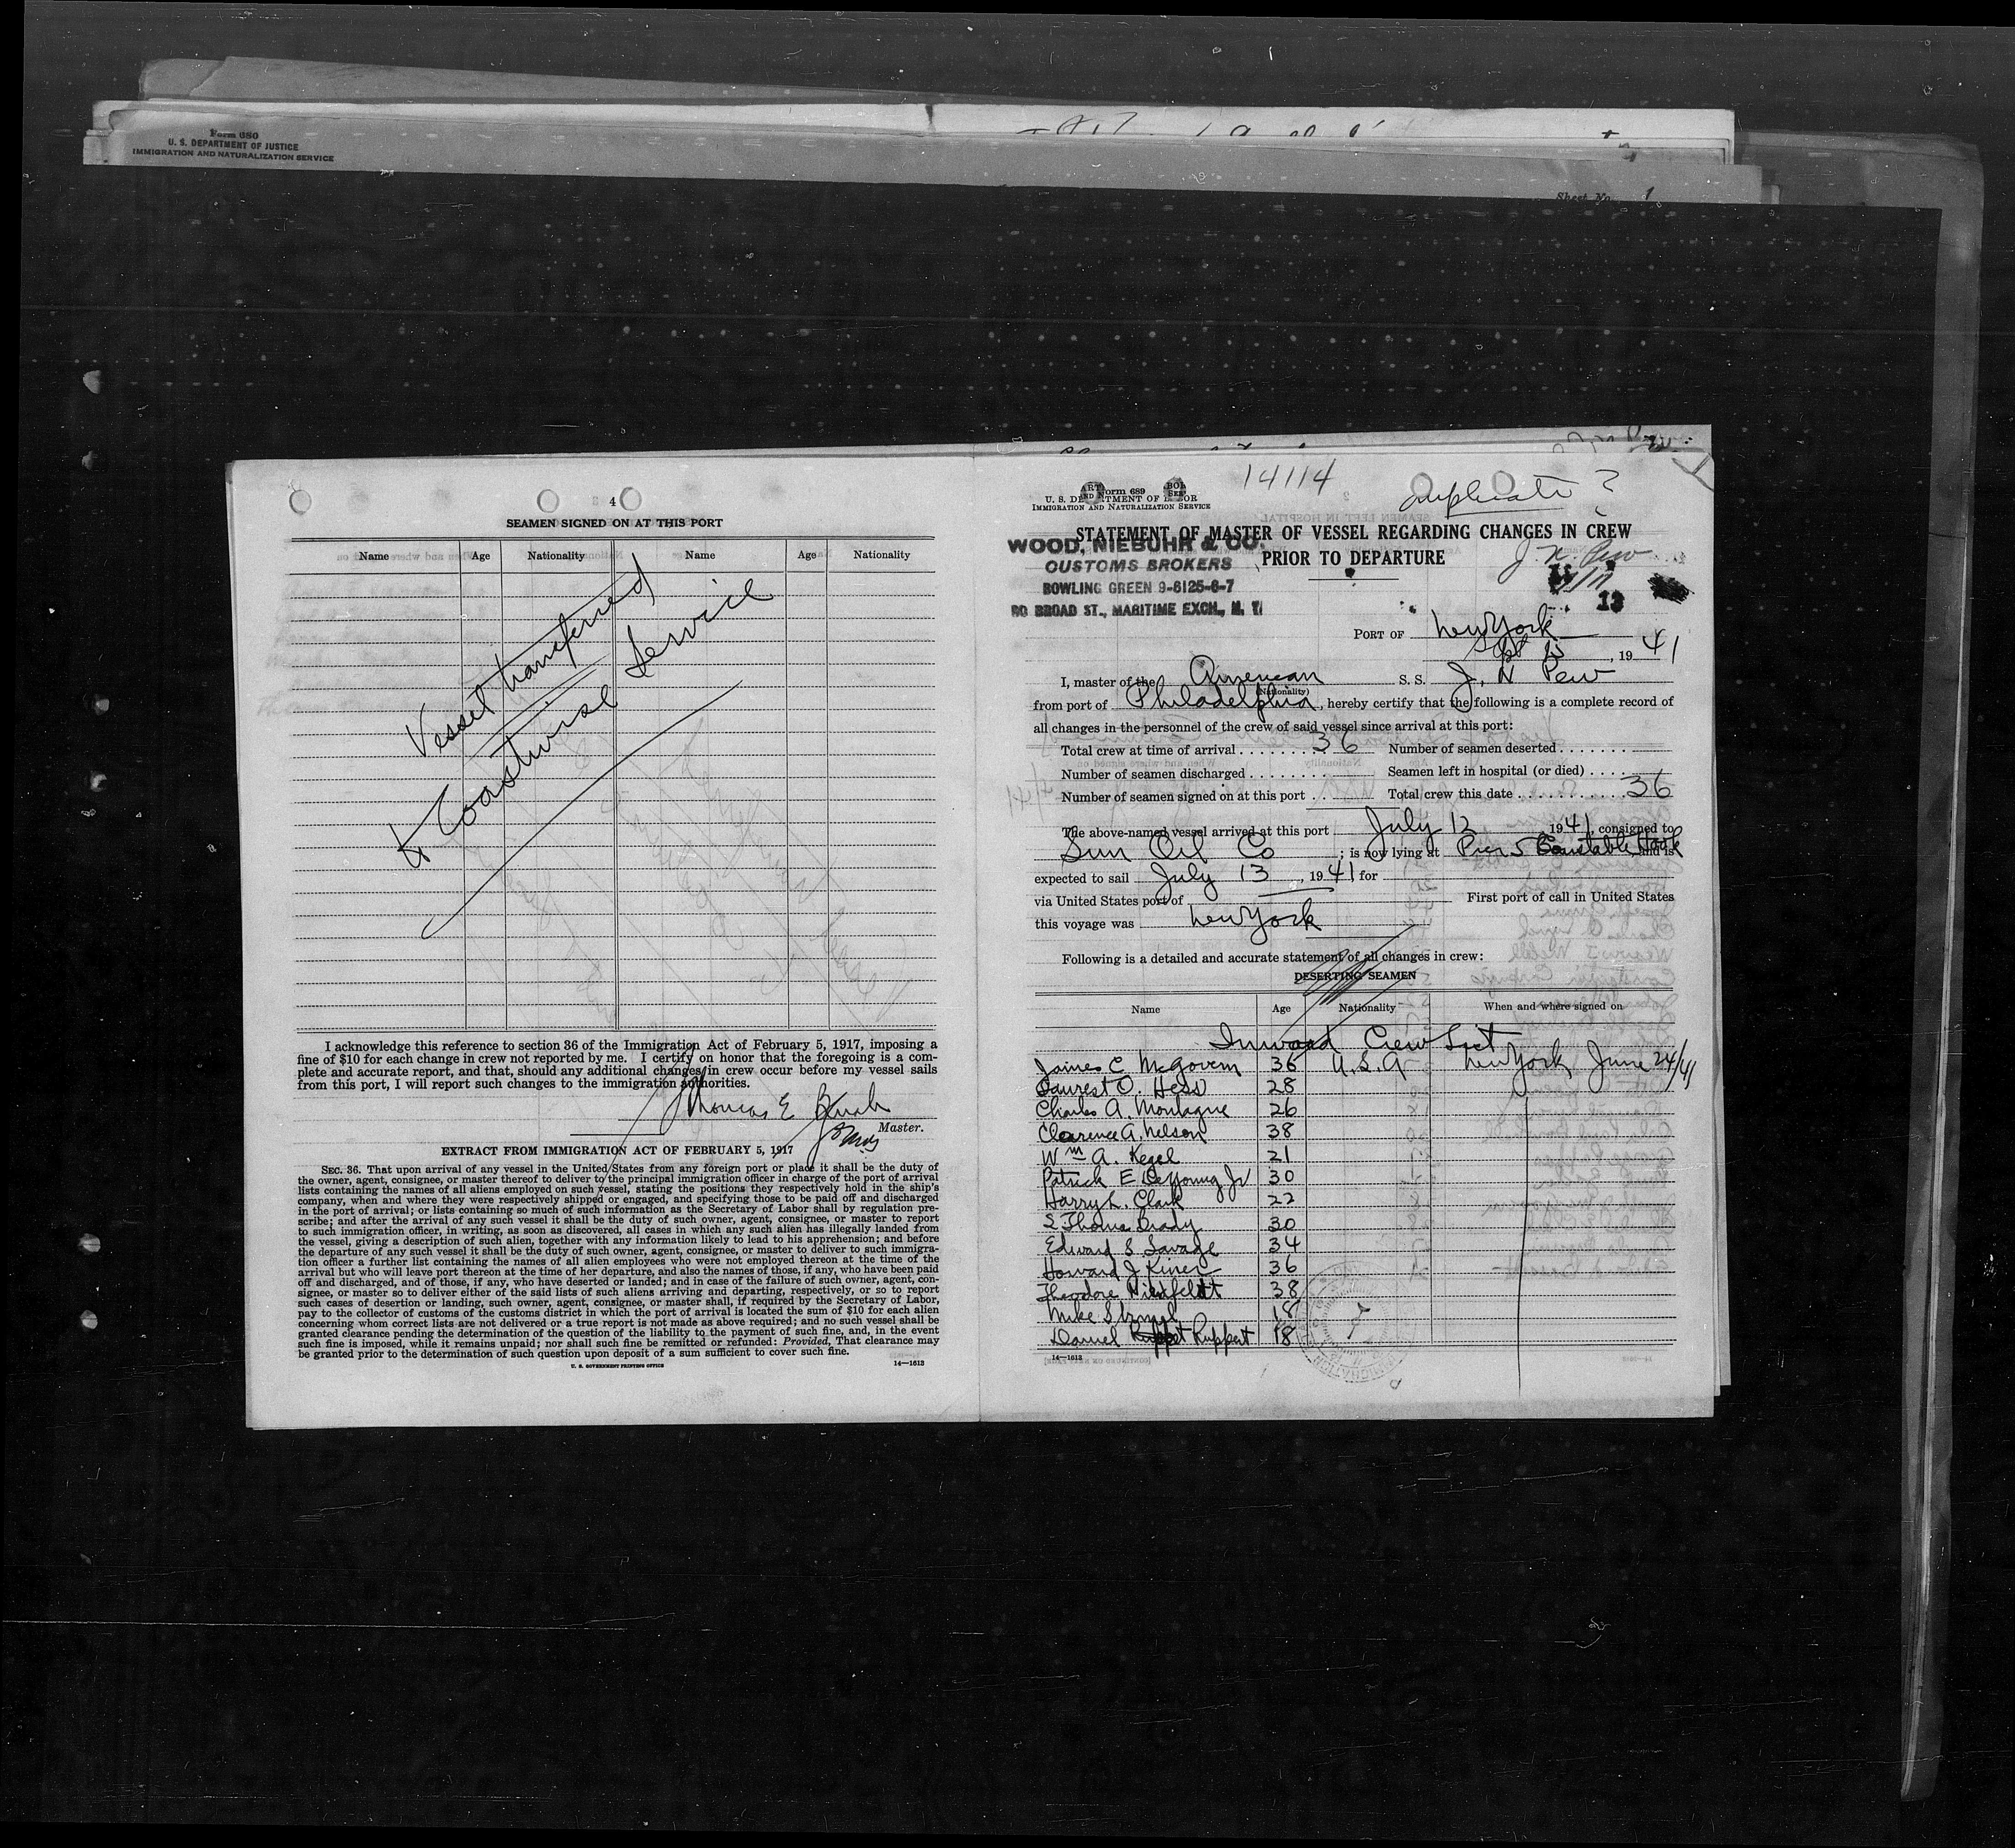 Form 680
U. S. DEPARTMENT OF JUSTICE
IMMIGRATION AND NATURALIZATION SERVICE
Sheet No. 1
4
SEAMEN SIGNED ON AT THIS PORT
Name Age Nationality Name Age Nationality
Vessel transferred
to Coastwise Service
I acknowledge this reference to section 36 of the Immigration Act of February 5, 1917, imposing a
fine of $10 for each change in crew not reported by me. I certify on honor that the foregoing is a com-
plete and accurate report, and that, should any additional changes in crew occur before my vessel sails
from this port, I will report such changes to the immigration authorities.
Thomas E
Master.
EXTRACT FROM IMMIGRATION ACT OF FEBRUARY 5, 1917
SEC. 36. That upon arrival of any vessel in the United States from any foreign port or place it shall be the duty of
the owner, agent, consignee, or master thereof to deliver to the principal immigration officer in charge of the port of arrival
lists containing the names of all aliens employed on such vessel, stating the positions they respectively hold in the ship's
company, when and where they were respectively shipped or engaged, and specifying those to be paid off and discharged
in the port of arrival; or lists containing so much of such information as the Secretary of Labor shall by regulation pre-
scribe; and after the arrival of any such vessel it shall be the duty of such owner, agent, consignee, or master to report
to such immigration officer, in writing, as soon as discovered, all cases in which any such alien has illegally landed from
the vessel, giving a description of such alien, together with any information likely to lead to his apprehension; and before
the departure of any such vessel it shall be the duty of such owner, agent, consignee, or master to deliver to such immigra-
tion officer a further list containing the names of all alien employees who were not employed thereon at the time of the
arrival but who will leave port thereon at the time of her departure, and also the names of those, if any, who have been paid
off and discharged, and of those, if any, who have deserted or landed; and in case of the failure of such owner, agent, con-
signee, or master so to deliver either of the said lists of such aliens arriving and departing, respectively, or so to report
such cases of desertion or landing, such owner, agent, consignee, or master shall, if required by the Secretary of Labor,
pay to the collector of customs of the customs district in which the port of arrival is located the sum of $10 for each alien
concerning whom correct lists are not delivered or a true report is not made as above required; and no such vessel shall be
granted clearance pending the determination of the question of the liability to the payment of such fine, and, in the event
such fine is imposed, while it remains unpaid; nor shall such fine be remitted or refunded: Provided, That clearance may
be granted prior to the determination of such question upon deposit of a sum sufficient to cover such fine.
U. S. GOVERNMENT PRINTING OFFICE 14—1613
14114
duplicate ?
Form 689
U. S. DEPARTMENT OF LABOR
IMMIGRATION AND NATURALIZATION SERVICE
STATEMENT OF MASTER OF VESSEL REGARDING CHANGES IN CREW
PRIOR TO DEPARTURE
WOOD, NIEBUHR & CO.
CUSTOMS BROKERS
BOWLING GREEN 9-6125-6-7
80 BROAD ST., MARITIME EXCH., N. Y.
J. N. Pew
13
PORT OF New York
, 19 41
I, master of the American S. S. J. N Pew
(Nationality)
from port of Philadelphia, hereby certify that the following is a complete record of
all changes in the personnel of the crew of said vessel since arrival at this port:
Total crew at time of arrival 36 Number of seamen deserted
Number of seamen discharged Seamen left in hospital (or died)
Number of seamen signed on at this port Total crew this date 36
The above-named vessel arrived at this port July 12, 1941, consigned to
Sun Oil Co; is now lying at Pier 5 Constable Hook and is
expected to sail July 13, 1941 for
via United States port of First port of call in United States
this voyage was New York
Following is a detailed and accurate statement of all changes in crew:
DESERTING SEAMEN
Name Age Nationality When and where signed on
Inward Crew List
James C McGovern 36 U.S.A New York June 24/41
Daurest O. Hess 28
Charles A. Montague 26
Clarence A. Nelson 38
Wm A. Kegel 21
Patrick E DeYoung Jr 30
Harry L. Clark 22
S Thomas Brady 30
Edward S Savage 34
Howard J Kiner 36
Theodore Nienfeldt 38
Mike 18
Daniel Ruppert 18
14—1613